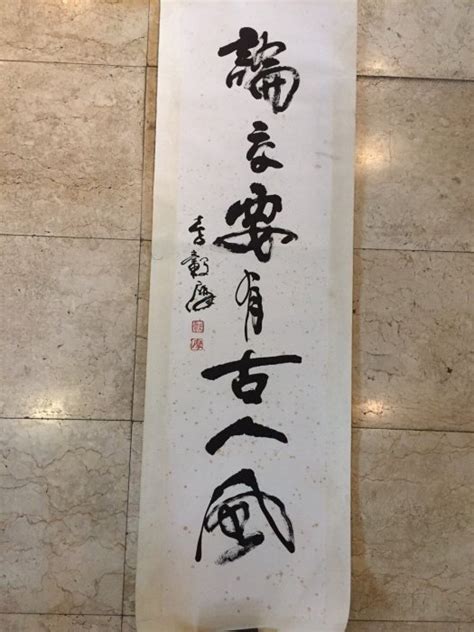 論交要有古人風
李毅摩